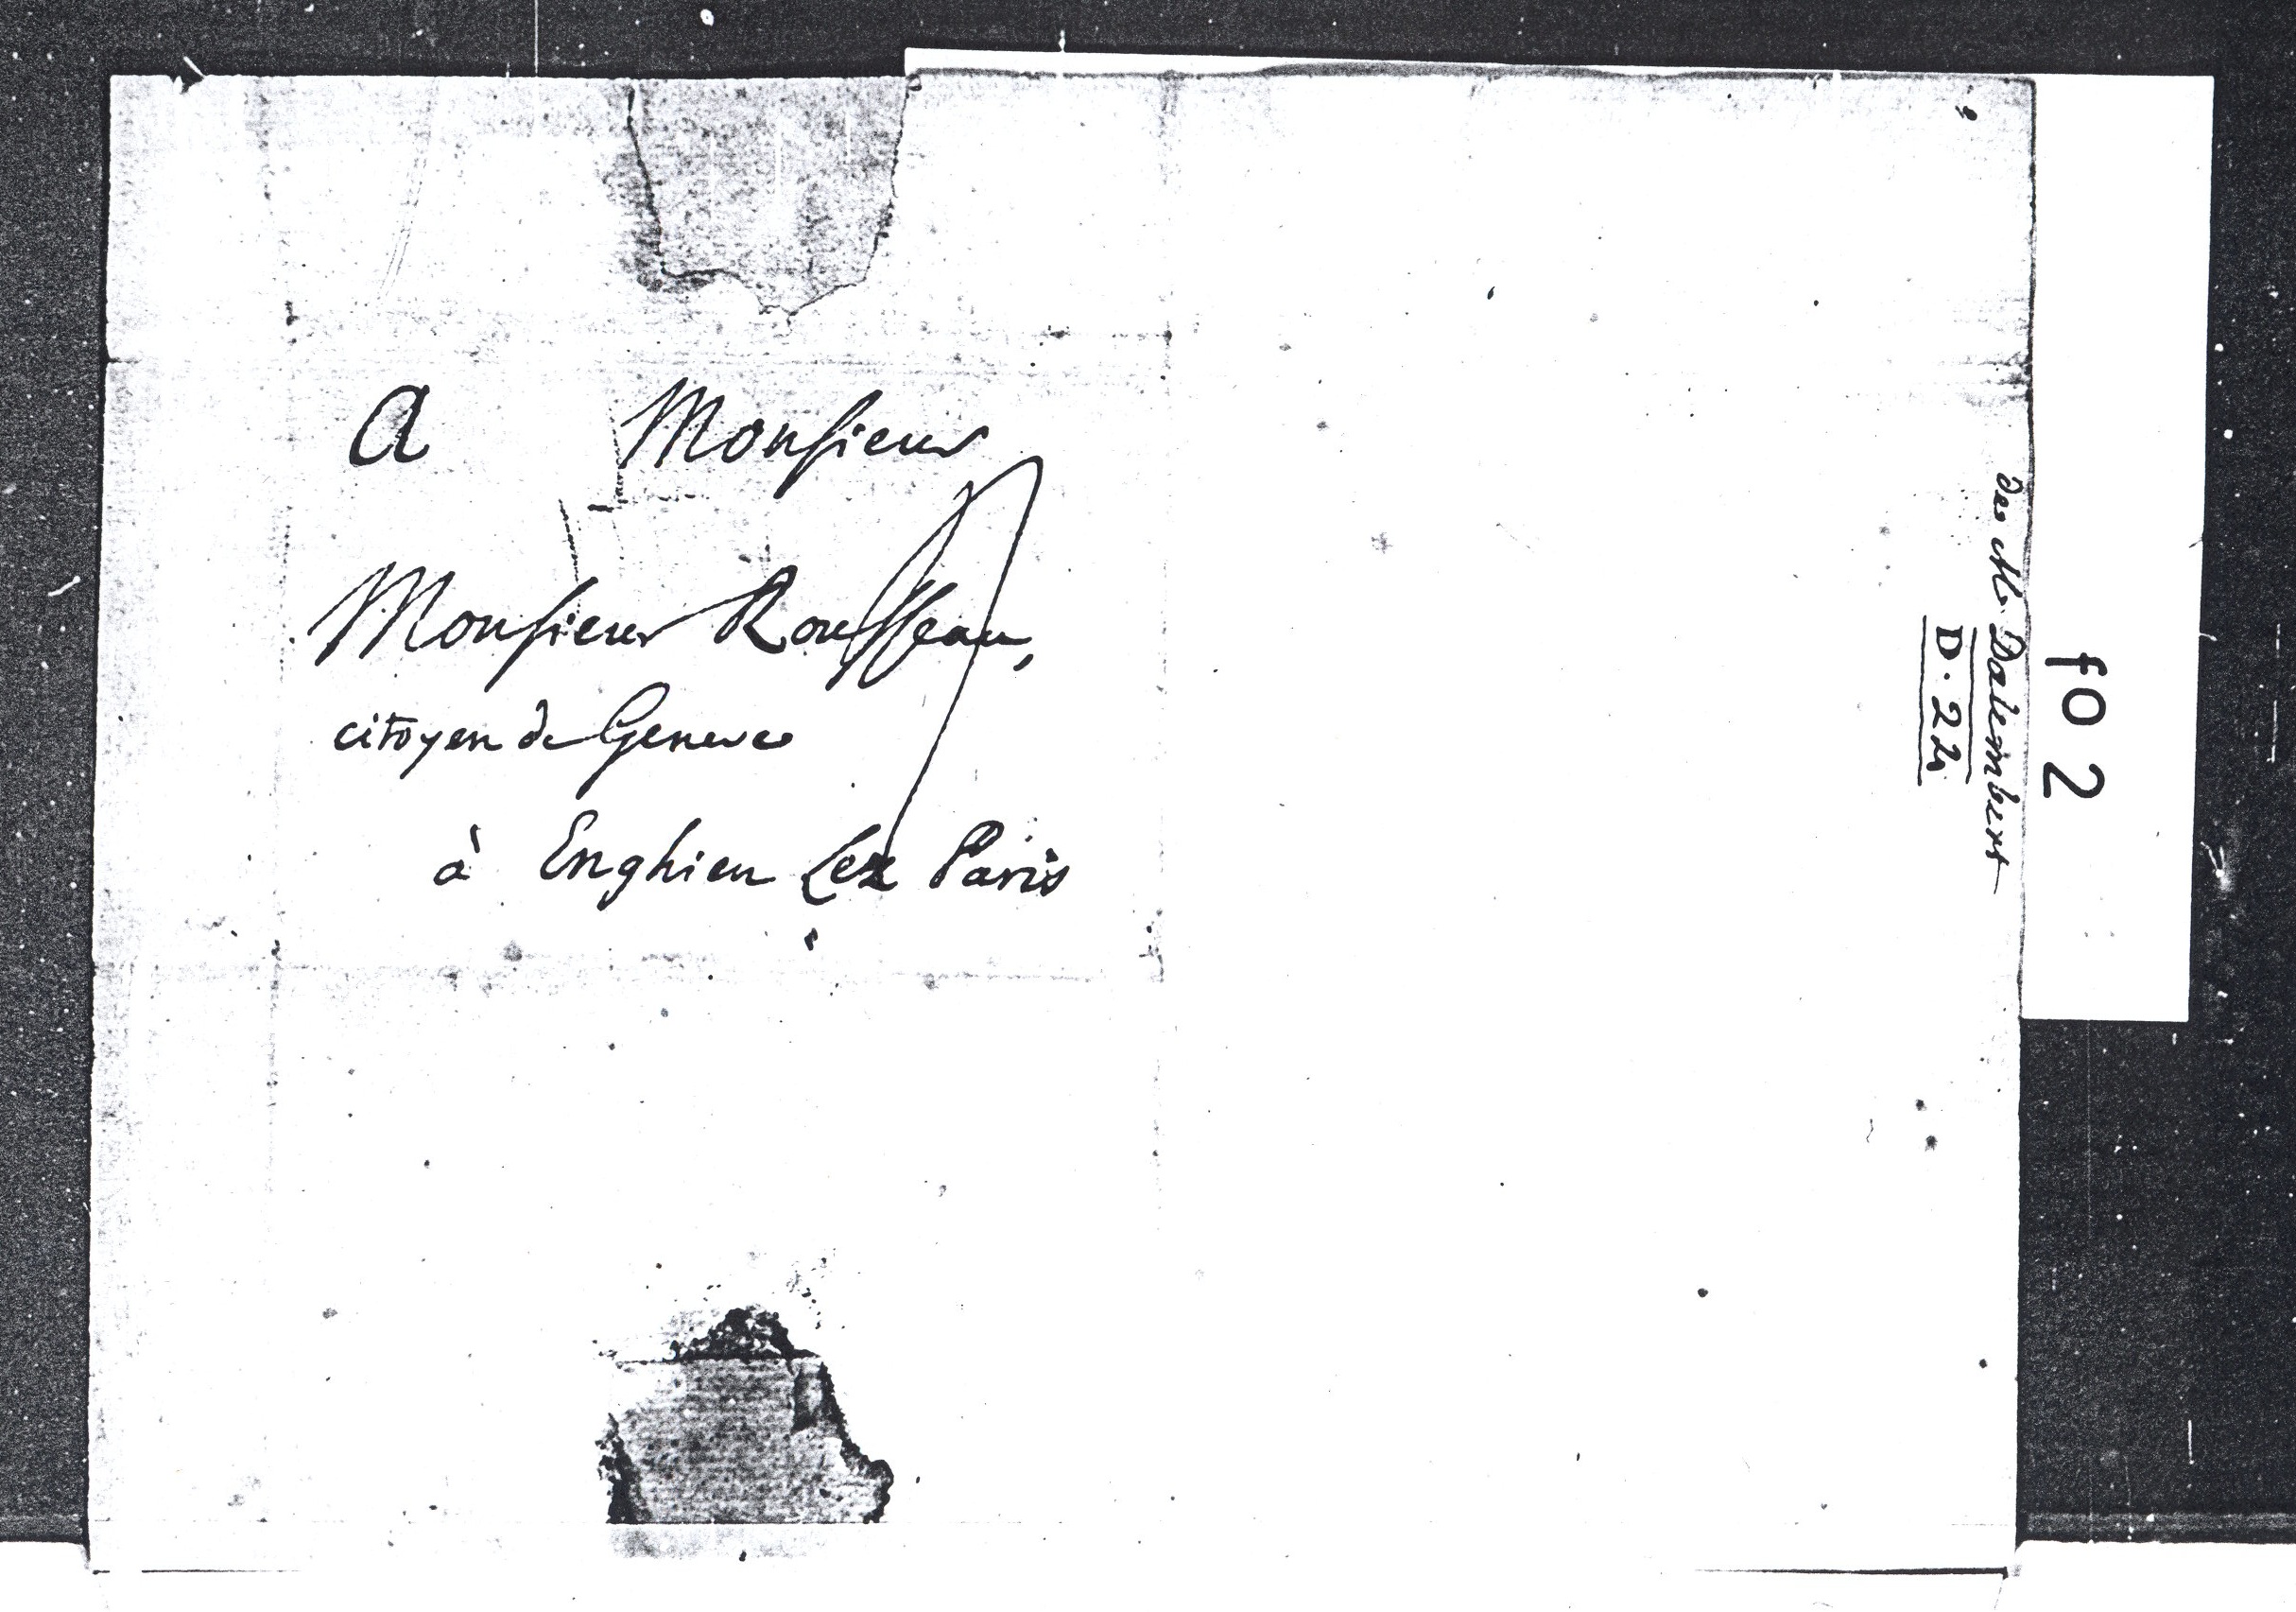 A Monsieur
Monsieur Rousseau,
citoyen de Geneve
à Enghien Lez Paris
de M. Dalembert
D. 22.
fo 2